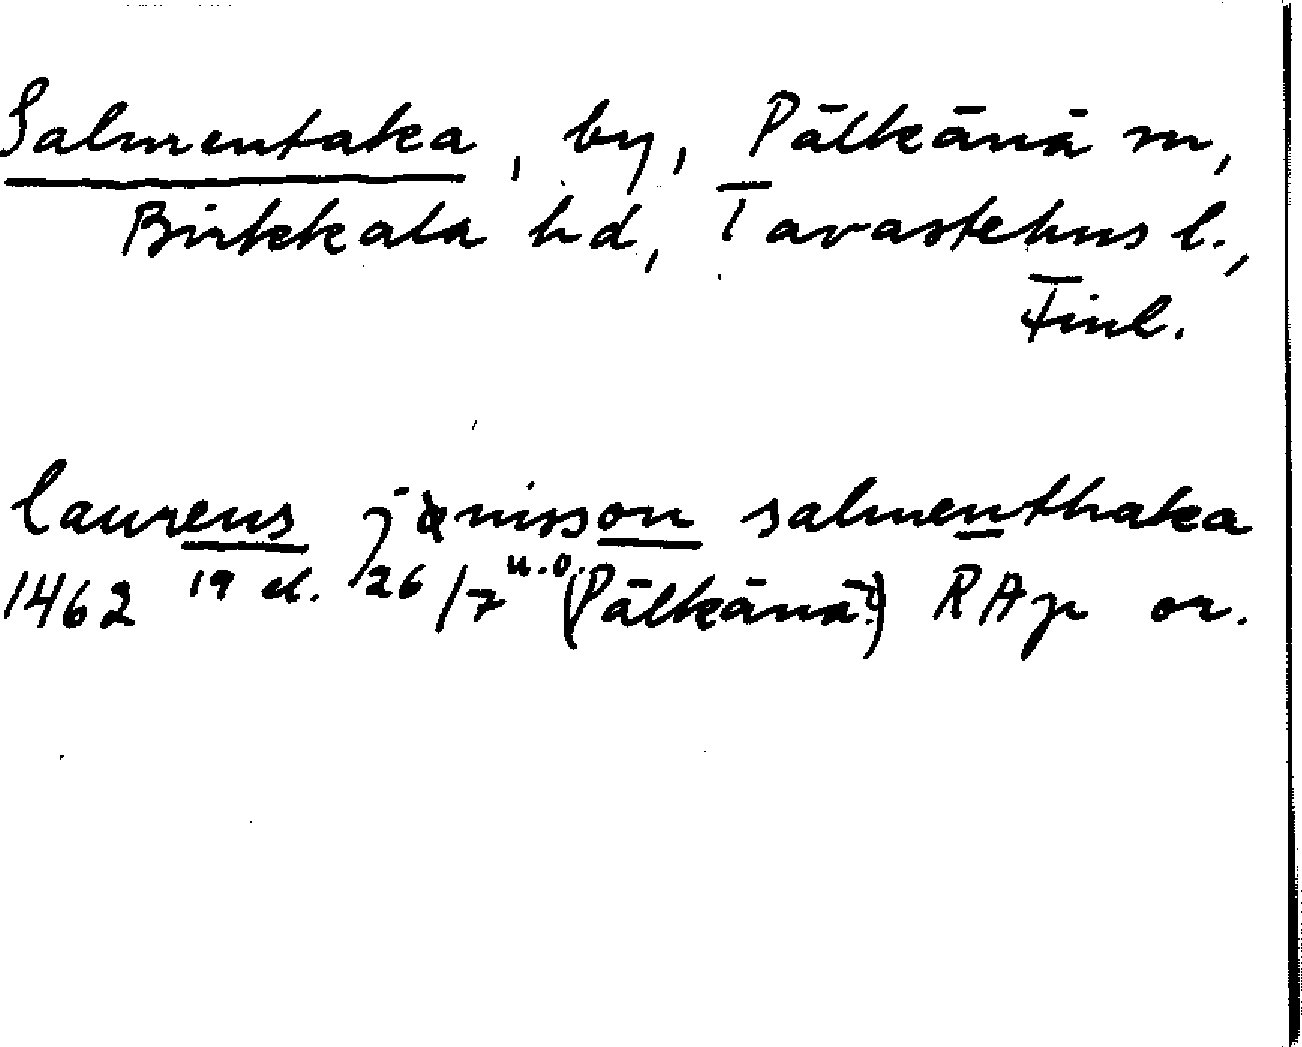 Salmentaka, by, Pälkänä sn,
Birkkala hd, Tavastehus l.,
Finl.
laurens jönisson salmenthaka
1462 19 el. 26/7 u.o. (Pälkänä?) RAp or.